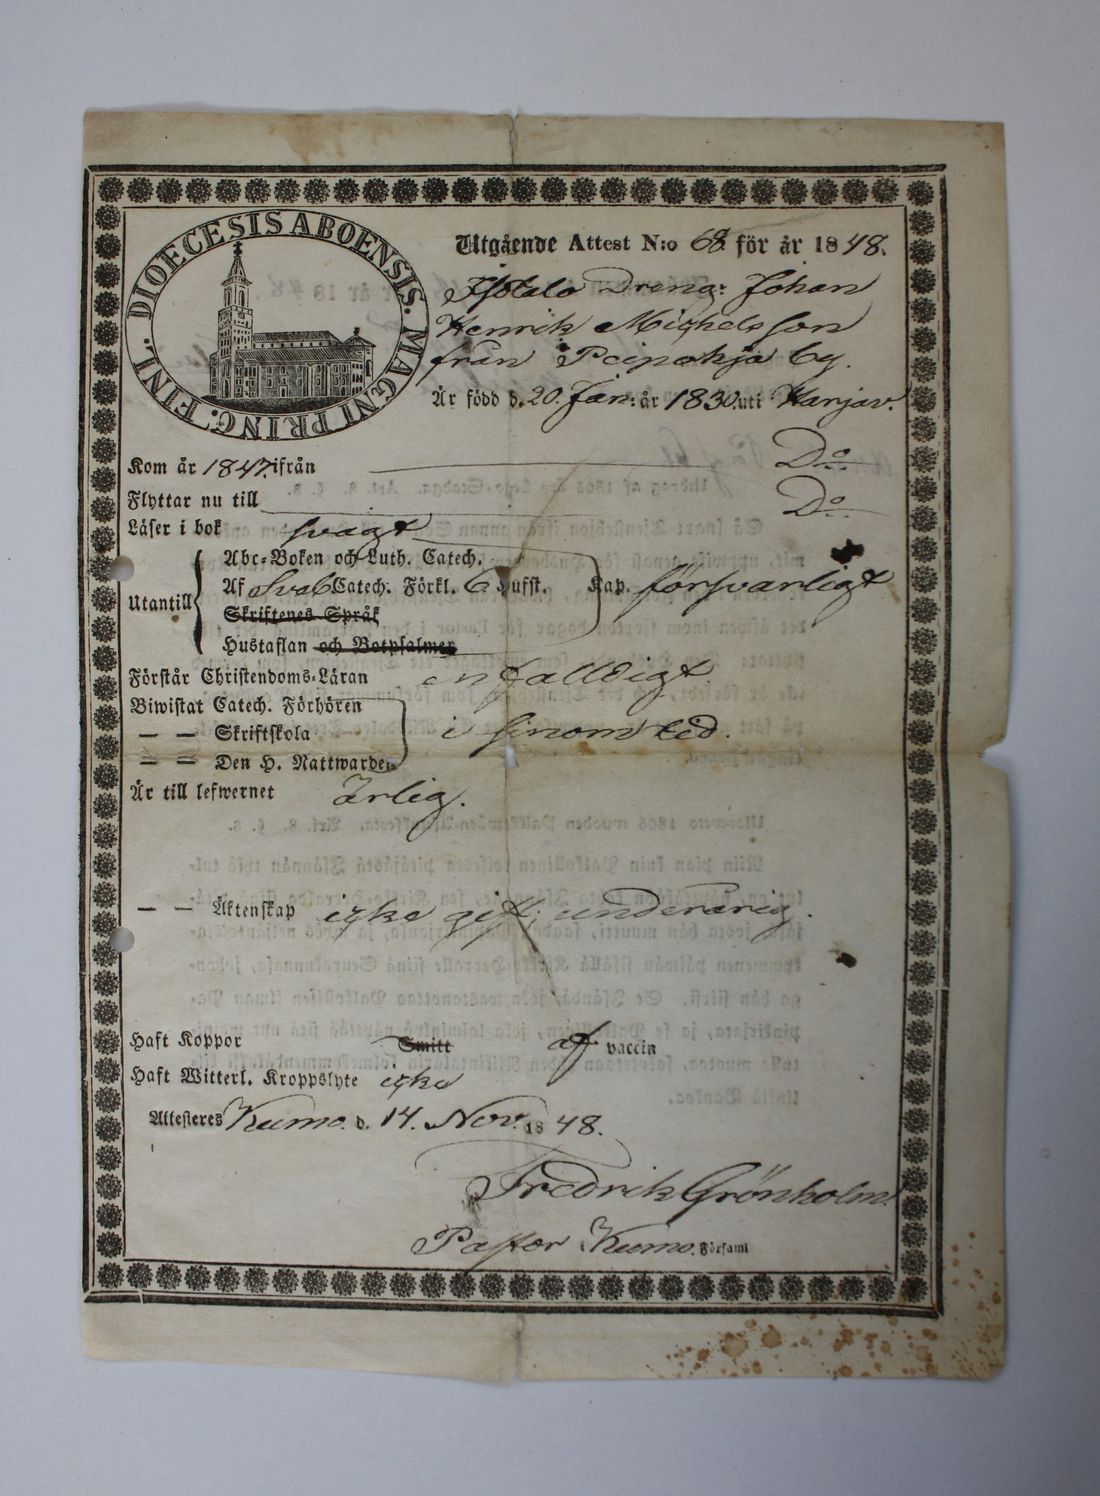 DIOECESIS ABOENSIS. MAGNI PRINC. FINL.
Utgående Attest N:o 68. för år 1848.
Dreng: Johan
Henrik Michelsson
från Peipohja by.
Är född d. 20. Jan: år 1830. uti Harjav.
Kom år 1847. ifrån Do.
Flyttar nu till Do.
Läser i bok svagt
Utantill
Abc-Boken och Luth. Catech.
Af Sveb Catech. Förkl. 6 Hufst. Kap. försvarligt
Skriftenes Språk
Hustaflan och Botpsalmer
Förstår Christendoms-Läran enfalldigt.
Biwistat Catech. Förhören
— — Skriftskola i sinom tid.
— — Den H. Nattwarden
Är till lefwernet Ärlig.
— — Äktenskap icke gift; underårig.
Haft Koppor Smitt af vaccin
Haft Witterl. Kroppslyte icke
Attesteres Kumo. d. 14. Nov. 1848.
Fredrik Grönholm.
Pastor i Kumo. Församl